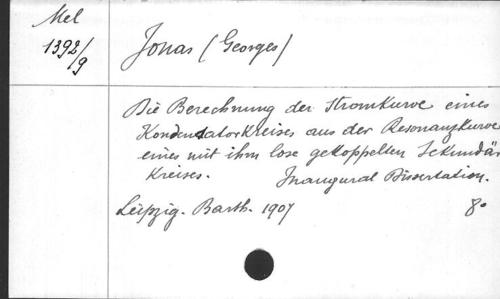 Mel
1392/9
Jonas (Georges)
Die Berechnung der Stromkurve eines
Kondensatorkreises aus der Resonanzkurve
eines mit ihm lose gekoppelten Sekundär
Kreises. Inaugural Dissertation.
Leipzig. Barth. 1907 8º